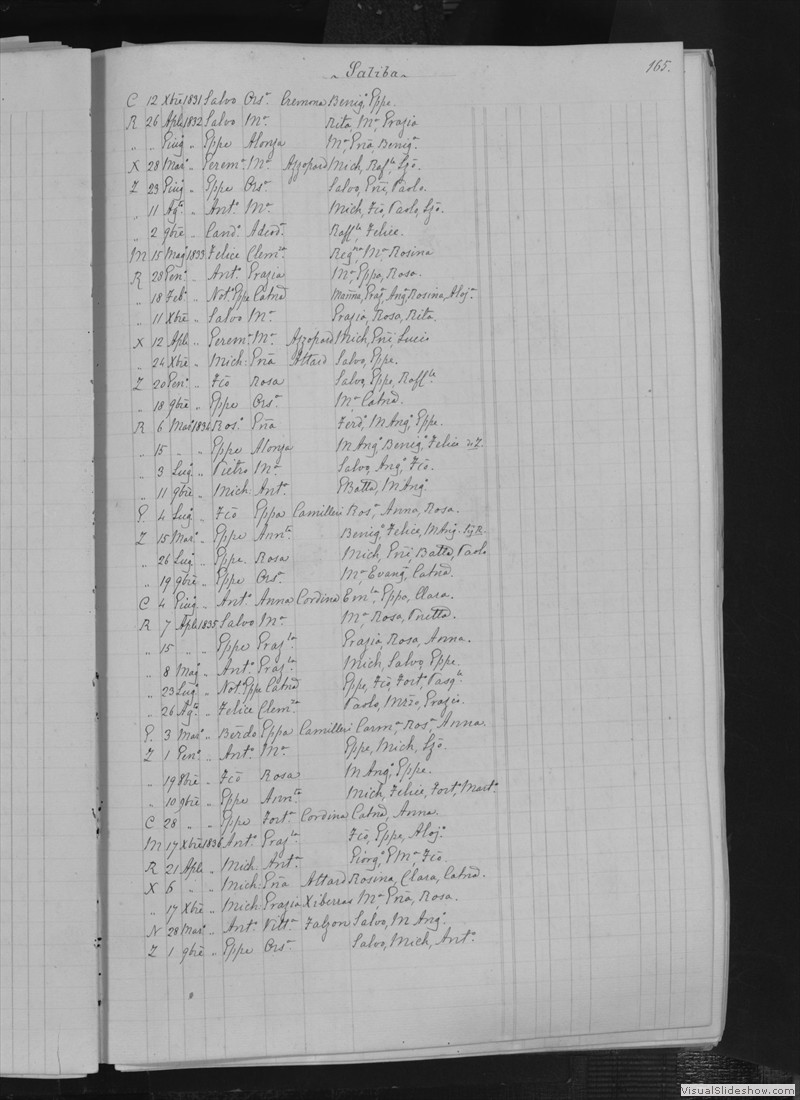 Saliba
165.
C 12 Xbrē 1831 Salvo Ors.ª Cremona Benig,ª Eppe.
R 26 Aple 1832 Salvo M.ª Rita, M,ª Grazia
„ „ Giug „ Eppe Alonza M,ª Gnā, Benig.ª
X 28 Mar.º „ Gerem.º M.ª Azzopard Mich, Raf,la Ljō.
Z 23 Giug „ Eppe Ors.ª Salvo, Gnē, Paolo.
„ 11 Ag.to „ Ant.º M.ª Mich, Fcō, Paolo, Ljō.
„ 2 9brē „ Cand.º Adeod.ª Raff,la Felice.
M 15 Mag.º 1833 Felice Clem.za Reg,na M,ª Rosina
R 28 Gen.º „ Ant.º Grazia M,ª Eppa, Rosa.
„ 18 Feb.º „ Not.º Eppe Catnā Marīna, Graz,ª Ang,ª Rosina, Aloj.ª
„ 11 Xbrē „ Salvo M.ª Grazia, Rosa, Rita.
X 12 Aple „ Gerem.º M.ª Azzopard Mich, Gnē, Lucio
„ 24 Xbrē „ Mich. Gnā Attard Salvo, Eppe.
Z 20 Gen.º „ Fcō Rosa Salvo, Eppe, Raff.la
„ 18 9brē „ Eppe Ors.ª M,ª Catnā.
R 6 Mar.º 1834 Ros.º Gnā Ferd,º M Ang,ª Eppe.
„ 15 „ „ Eppe Alonza M Ang,ª Benig,ª Felice di Z.
„ 3 Lug. „ Pietro M.ª Salvo, Ang,º Fcō.
„ 11 9brē „ Mich. Ant.ª GBatta, M Ang.º
G. 4 Lug. „ Fcō Eppa Camilleri Ros,ª Anna, Rosa.
Z 15 Mar.º „ Eppe Ann.ta Benig,º Felice, M Ang.
„ 26 Lug. „ Eppe. Rosa Mich, Gnē, Batta, Paolo
„ 19 9brē „ Eppe Ors.ª M,ª Evang,ª Catnā.
C 4 Giug „ Ant.º Anna Cordina Em,la Eppa, Clara.
R 7 Aple 1835 Salvo M.ª M,ª Rosa, Pnetta.
„ 15 „ „ Eppe Graz.la Grazia, Rosa, Anna.
„ 8 Mag.º „ Ant.º Graz.la Mich, Salvo, Eppe.
„ 23 Lug. „ Not.º Eppe Catnā Eppe, Fcō, Fort,º Pasq.le
„ 26 Ag.to „ Felice Clem.za Paolo, Mrzō, Grazio.
G. 3 Mar.º „ Berdō Eppa Camilleri Carm,ª Ros,ª Anna.
Z 1 Gen.º „ Ant.º M.ª Eppe, Mich, Ljō.
„ 19 8brē „ Fcō Rosa M Ang,º Eppe.
„ 10 9brē „ Eppe Ann.ta Mich, Felice, Fort,º Mart.º
C 28 „ „ Eppe Fort.ª Cordina Catnā, Anna.
M 17 Xbrē 1836 Ant.º Graz.la Fcō, Eppe, Aloj.º
R 21 Aple „ Mich. Ant.ª Giorg,º GM,ª Fcō.
X 6 „ „ Mich. Gnā Attard Rosina, Clara, Catnā.
„ 17 Xbrē „ Mich. Grazia Xiberras M,ª Gnā, Rosa.
N 28 Mar.º „ Ant.º Vitt.ª Falzon Salvo, M Ang.º
Z 1 9brē „ Eppe Ors.ª Salvo, Mich, Ant.º
VisualSlideshow.com